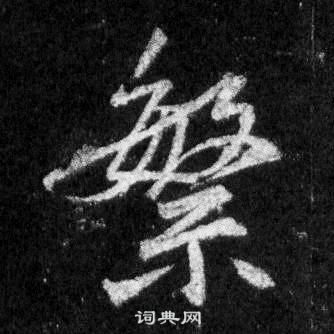 繁
词典网